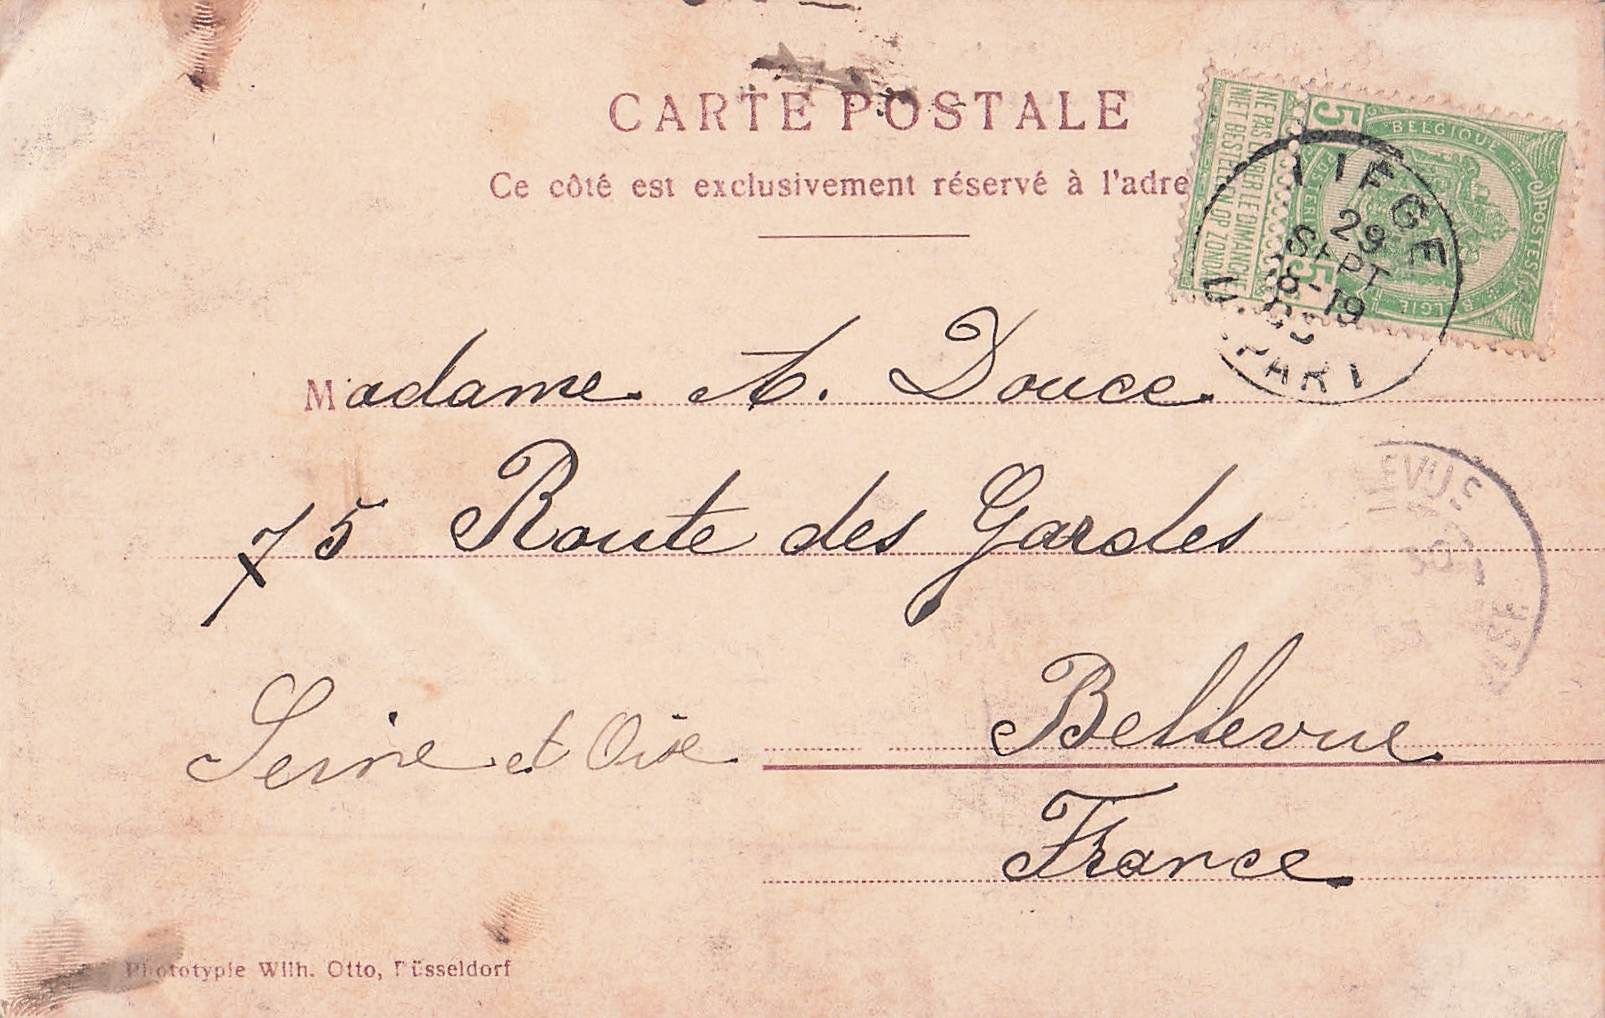 CARTE POSTALE
Ce côté est exclusivement réservé à l'adre
5 BELGIQUE POSTES
NE PAS LIVRER LE DIMANCHE
NIET BESTELLEN OP ZONDAG
5
LIEGE
29
SEPT
8-19
Madame A. Douce.
75 Route des Gardes
Bellevue
Seine et Oise
France
Phototypie Wilh. Otto, Düsseldorf